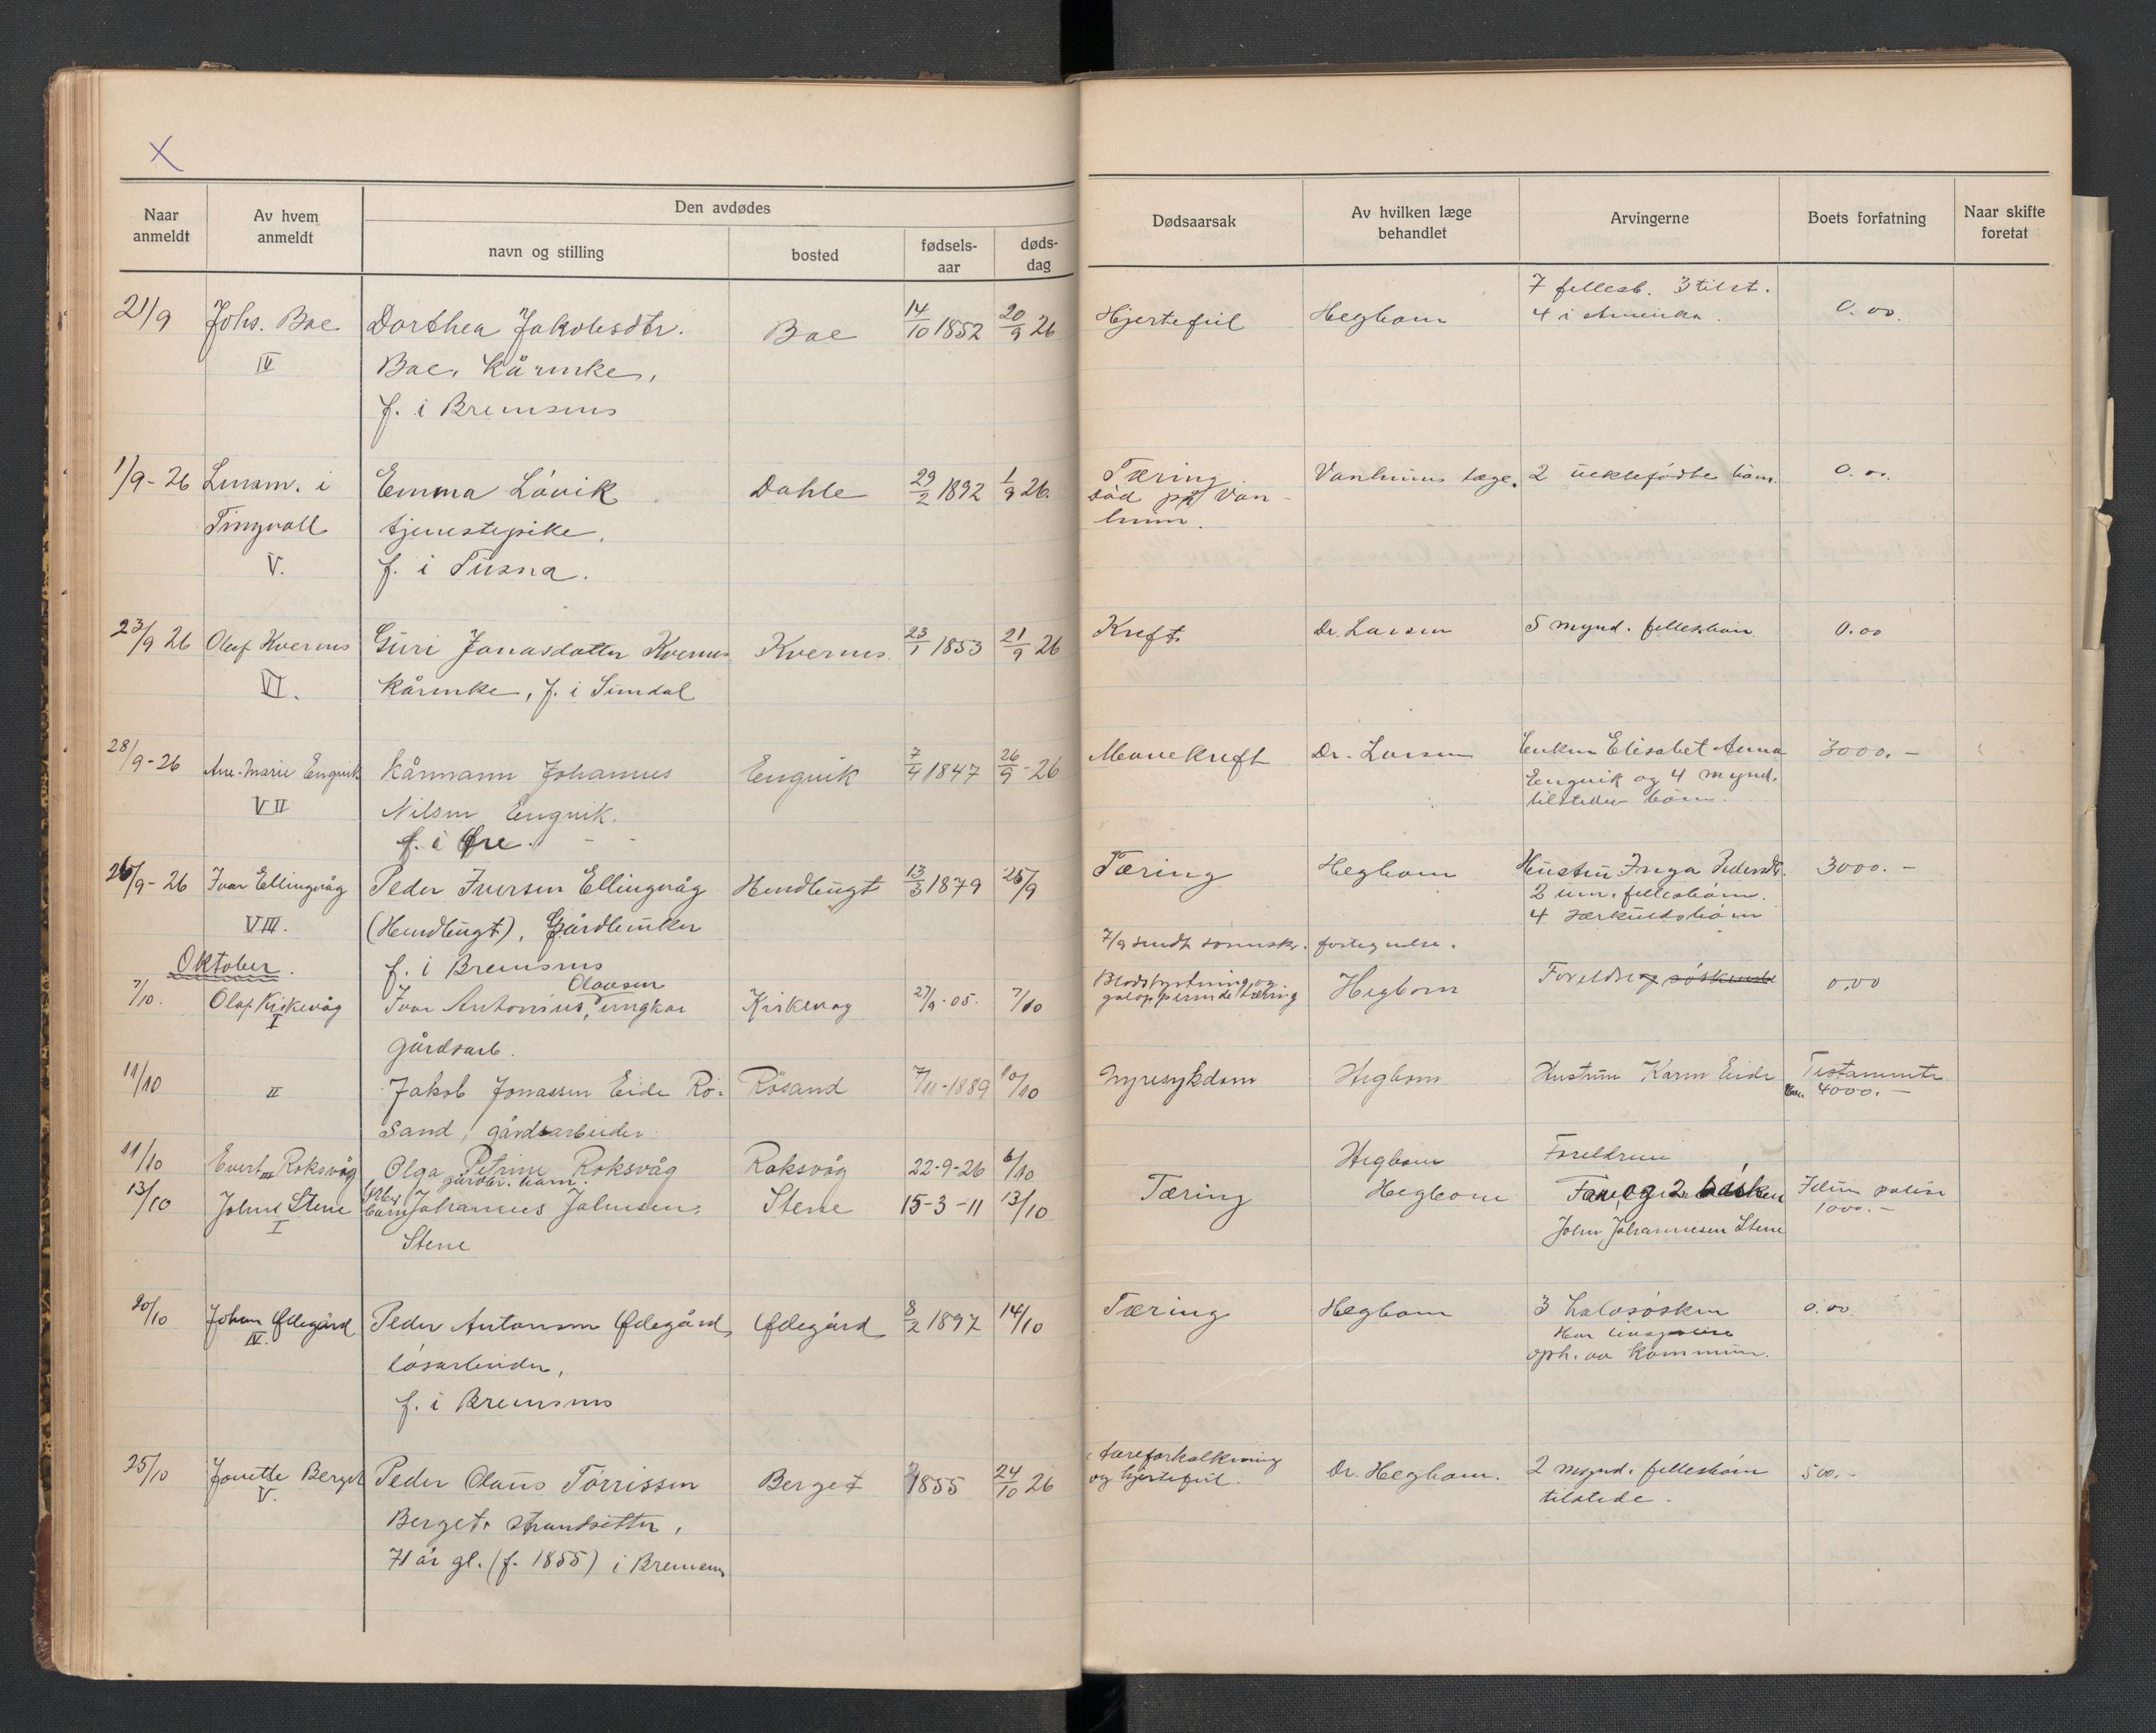 X
Naar anmeldt
Av hvem anmeldt
Den avdødes
navn og stilling
bosted
fødsels-aar
døds-dag
Dødsaarsak
Av hvilken læge behandlet
Arvingerne
Boets forfatning
Naar skifte foretat
21/9 Johs. Bae Dorthea Jakobsdtr. Bae 14/10 1852 20/9 26 Hjertefeil Hegbom 7 fellesb. 3 tilst. 0.00.
IV Bae, Kårenke, 4 i Amerika.
f. i Bremsnes
1/9-26 Lensm. i Emma Lövik Dahle 29/2 1892 1/9 26. Tæring Vanheims læge. 2 uektefödte barn. 0.00.
Tingvoll tjenestepike, död på Van-
V. f. i Tusna. heim.
23/9 26 Olaf Kvernes Guri Jonasdatter Kvernes Kvernes. 23/1 1853 21/9 26 Kreft Dr. Larsen 5 mynd. fellesbarn 0.00
VI. Kårenke, f. i Sundal
28/9-26 Ane-Marie Engvik Kårmann Johannes Engvik 7/4 1847 26/9-26 Mavekreft Dr. Larsen Enken Elisabet Anna 3000.-
VII Nilsen Engvik. Engvik og 4 mynd.
f. i Øre. tilstedev. börn.
26/9-26 Ivar Ellingvåg Peder Iversen Ellingvåg Hendbugt 13/3 1879 25/9 Tæring Hegbom Hustru Inga Pedersdtr. 3000.-
VIII. (Hendbugt), Gårdbruker 2 um. fellesbörn.
4 særkuldsbörn
Oktober. f. i Bremsnes 7/9 sendt fortegnelse.
7/10. Olaf Kirkevåg Ivar Antonius Olavsen, ungkar Kirkevåg 27/9-05. 7/10 Blodstyrtning og galopperende tæring Hegbom Foreldre og söskende 0,00
I gårdsarb.
11/10 II Jakob Jonassen Eide Rö- Rösand 7/11-1889 10/10 Nyresykdom Hegbom Hustrun Karen Eide Testamente
sand, gårdsarbeider 4000.-
11/10 Evert Roksvåg Olga Petrine Roksvåg Roksvåg 22-9-26 6/10 Hegbom Foreldrene
III gårdbr. barn.
13/10 Johns Stene barn Johannes Johnsen, Stene 15-3-11 13/10 Tæring Hegbom Far og 2 sösken
I Stene John Johannesen Stene 1000.-
20/10 Johan Ødegård Peder Antonsen Ødegård, Ødegård 8/2 1897 14/10 Tæring Hegbom 3 halvsösken 0.00.
IV. lösarbeider, Har
f. i Bremsnes oph. av kommun.
25/10 Jonette Berget Peder Olaus Törrissen Berget 1855 24/10 26 Åreforkalkning Dr. Hegbom. 2 mynd. fellesbörn 500.-
V. Berget, strandsitter, og hjertefeil. tilstede.
71 år gl. (f. 1855) i Bremsnes